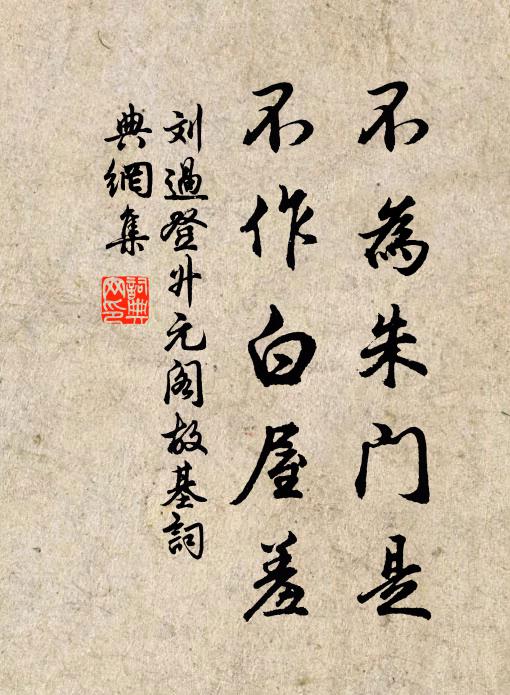 不為朱门是
不作白屋羞
刘過登升元阁故基詞
典網集
詞典网印